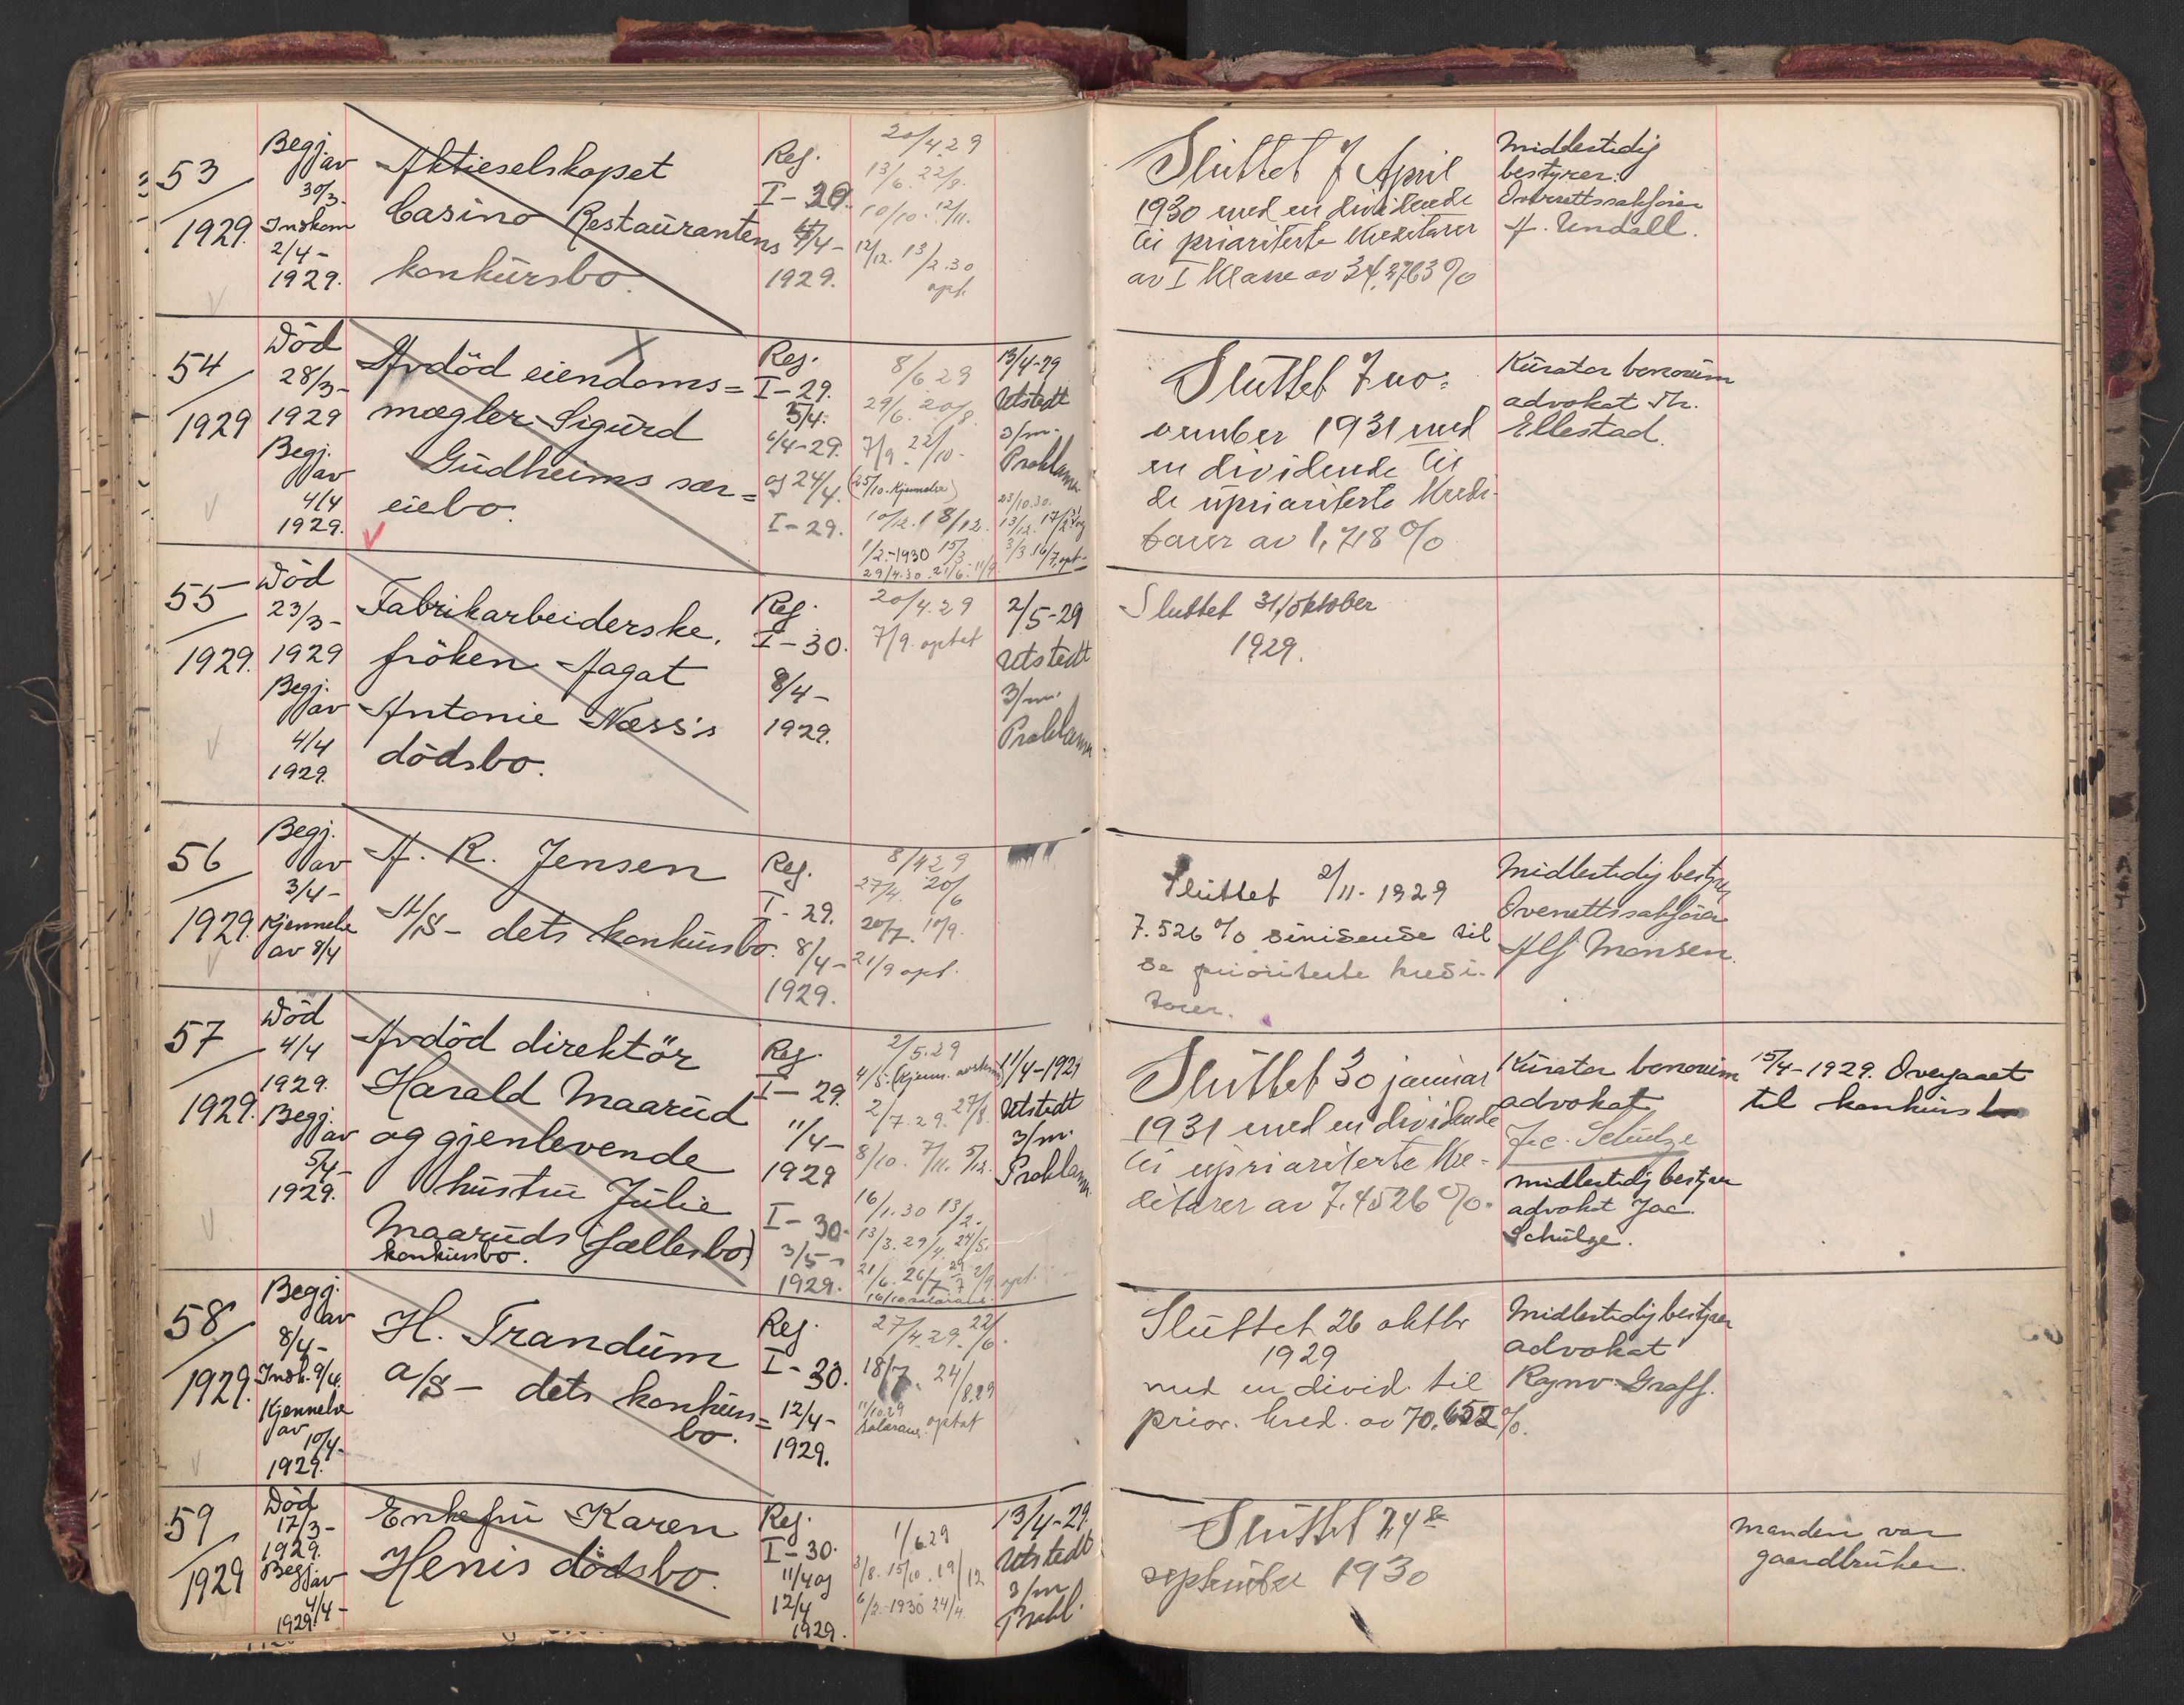 53
1929.
Begj.
av
30/3.
Innkom
2/4-
1929.
Aktieselskapet
Casino Restaurantens
konkursbo.
Reg.
I-30.
4/4-
1929.
20/4.29
13/6. 22/8.
10/10. 12/11.
12/12. 13/2.30
opt.
Sluttet 7 April
1930 med en dividende
til prioriterte kreditorer
av I klasse av 34,3763%
Midlertidig
bestyrer:
Overrettssakfører
H. Undall.
54
1929
Död
28/3-
1929
Begj.
av
4/4
1929.
Avdöd eiendoms=
mægler Sigurd
Gudheims sær=
eiebo.
Reg.
I-29.
5/4.
6/4-29.
og 24/4.
I-29.
8/6 29
29/6. 20/8
7/9. 22/10-
(25/10. Kjennelse)
10/12. 18/12.
1/2.-1930 15/3
29/4.30. 21/6. 11/9
13/4-29
Utstedt
3/m.
Proklama
23/10.30.
3/3. 16/7. opt.
Sluttet 7 no=
vember 1931 med
en dividende til
de uprioriterte kredi-
torer av 1,718%
Kurator bonorum
advokat Th.
Ellestad.
55
1929.
Död
23/3-
1929
Begj.
av
4/4
1929.
Fabrikarbeiderske,
fröken Aagat
Antonie Næss's
dödsbo.
Reg.
I-30.
8/4-
1929.
20/4.29
7/9. optat
2/5-29
Utstedt
3/m.
Proklama
Sluttet 31/oktober
1929.
56
1929.
Begj.
av
3/4-
Kjennelse
av 8/4
A. R. Jensen
A/S- dets konkursbo.
Reg.
I-29.
8/4-
1929.
8/4 29
27/4. 20/6
20/7. 10/9.
21/9 opt.
Sluttet 2/11-1929
7.526% dividende til
de prioriterte kredi-
torer.
Midlertidig bestyrer
Overrettssakfører
Alf Monsen.
57
1929.
Död
4/4
1929.
Begj.
av
5/4-
1929.
Avdöd direktör
Harald Maarud
og gjenlevende
hustru Julie
Maaruds (fællesbo)
konkursbo.
Reg.
I-29.
11/4-
1929
I-30.
3/5-
1929.
2/5.29
2/7.29. 27/8.
8/10. 7/11. 5/12.
16/1.30 13/2.
13/3. 29/4. 24/5.
11/4-1929
Utstedt
3/m.
Proklama
Sluttet 30 januar
1931 med en dividende
til uprioriterte kre-
ditorer av 7.4526%.
Kurator bonorum
advokat
Jac. Schulze
midlertidig bestyrer
advokat Jac.
Schulze.
15/4-1929. Overgaaet
til konkursbo
58
1929.
Begj.
av
8/4-
Innk. 9/4.
Kjennelse
av
10/4-
1929.
H. Trandum
A/S- dets konkurs=
bo.
Reg.
I-30.
12/4-
1929.
27/4.29. 22/6.
18/7. 24/8.29
11/10.29
salærans. optat
Sluttet 26 oktbr
1929
med en divid. til
prior. kred. av 70.652%.
Midlertidig bestyrer
advokat
Ragnv. Graff.
59
1929
Död
17/3-
1929.
Begj. av
4/4-
1929.
Enkefru Karen
Henis dödsbo.
Reg.
I-30.
11/4 og
12/4
1929.
1/6.29
3/8. 15/10. 19/12
6/2.-1930 24/4.
13/4-29.
Utstedt
3/m
Prokl.
Sluttet 24de
september 1930
Manden var
gaardbruker.